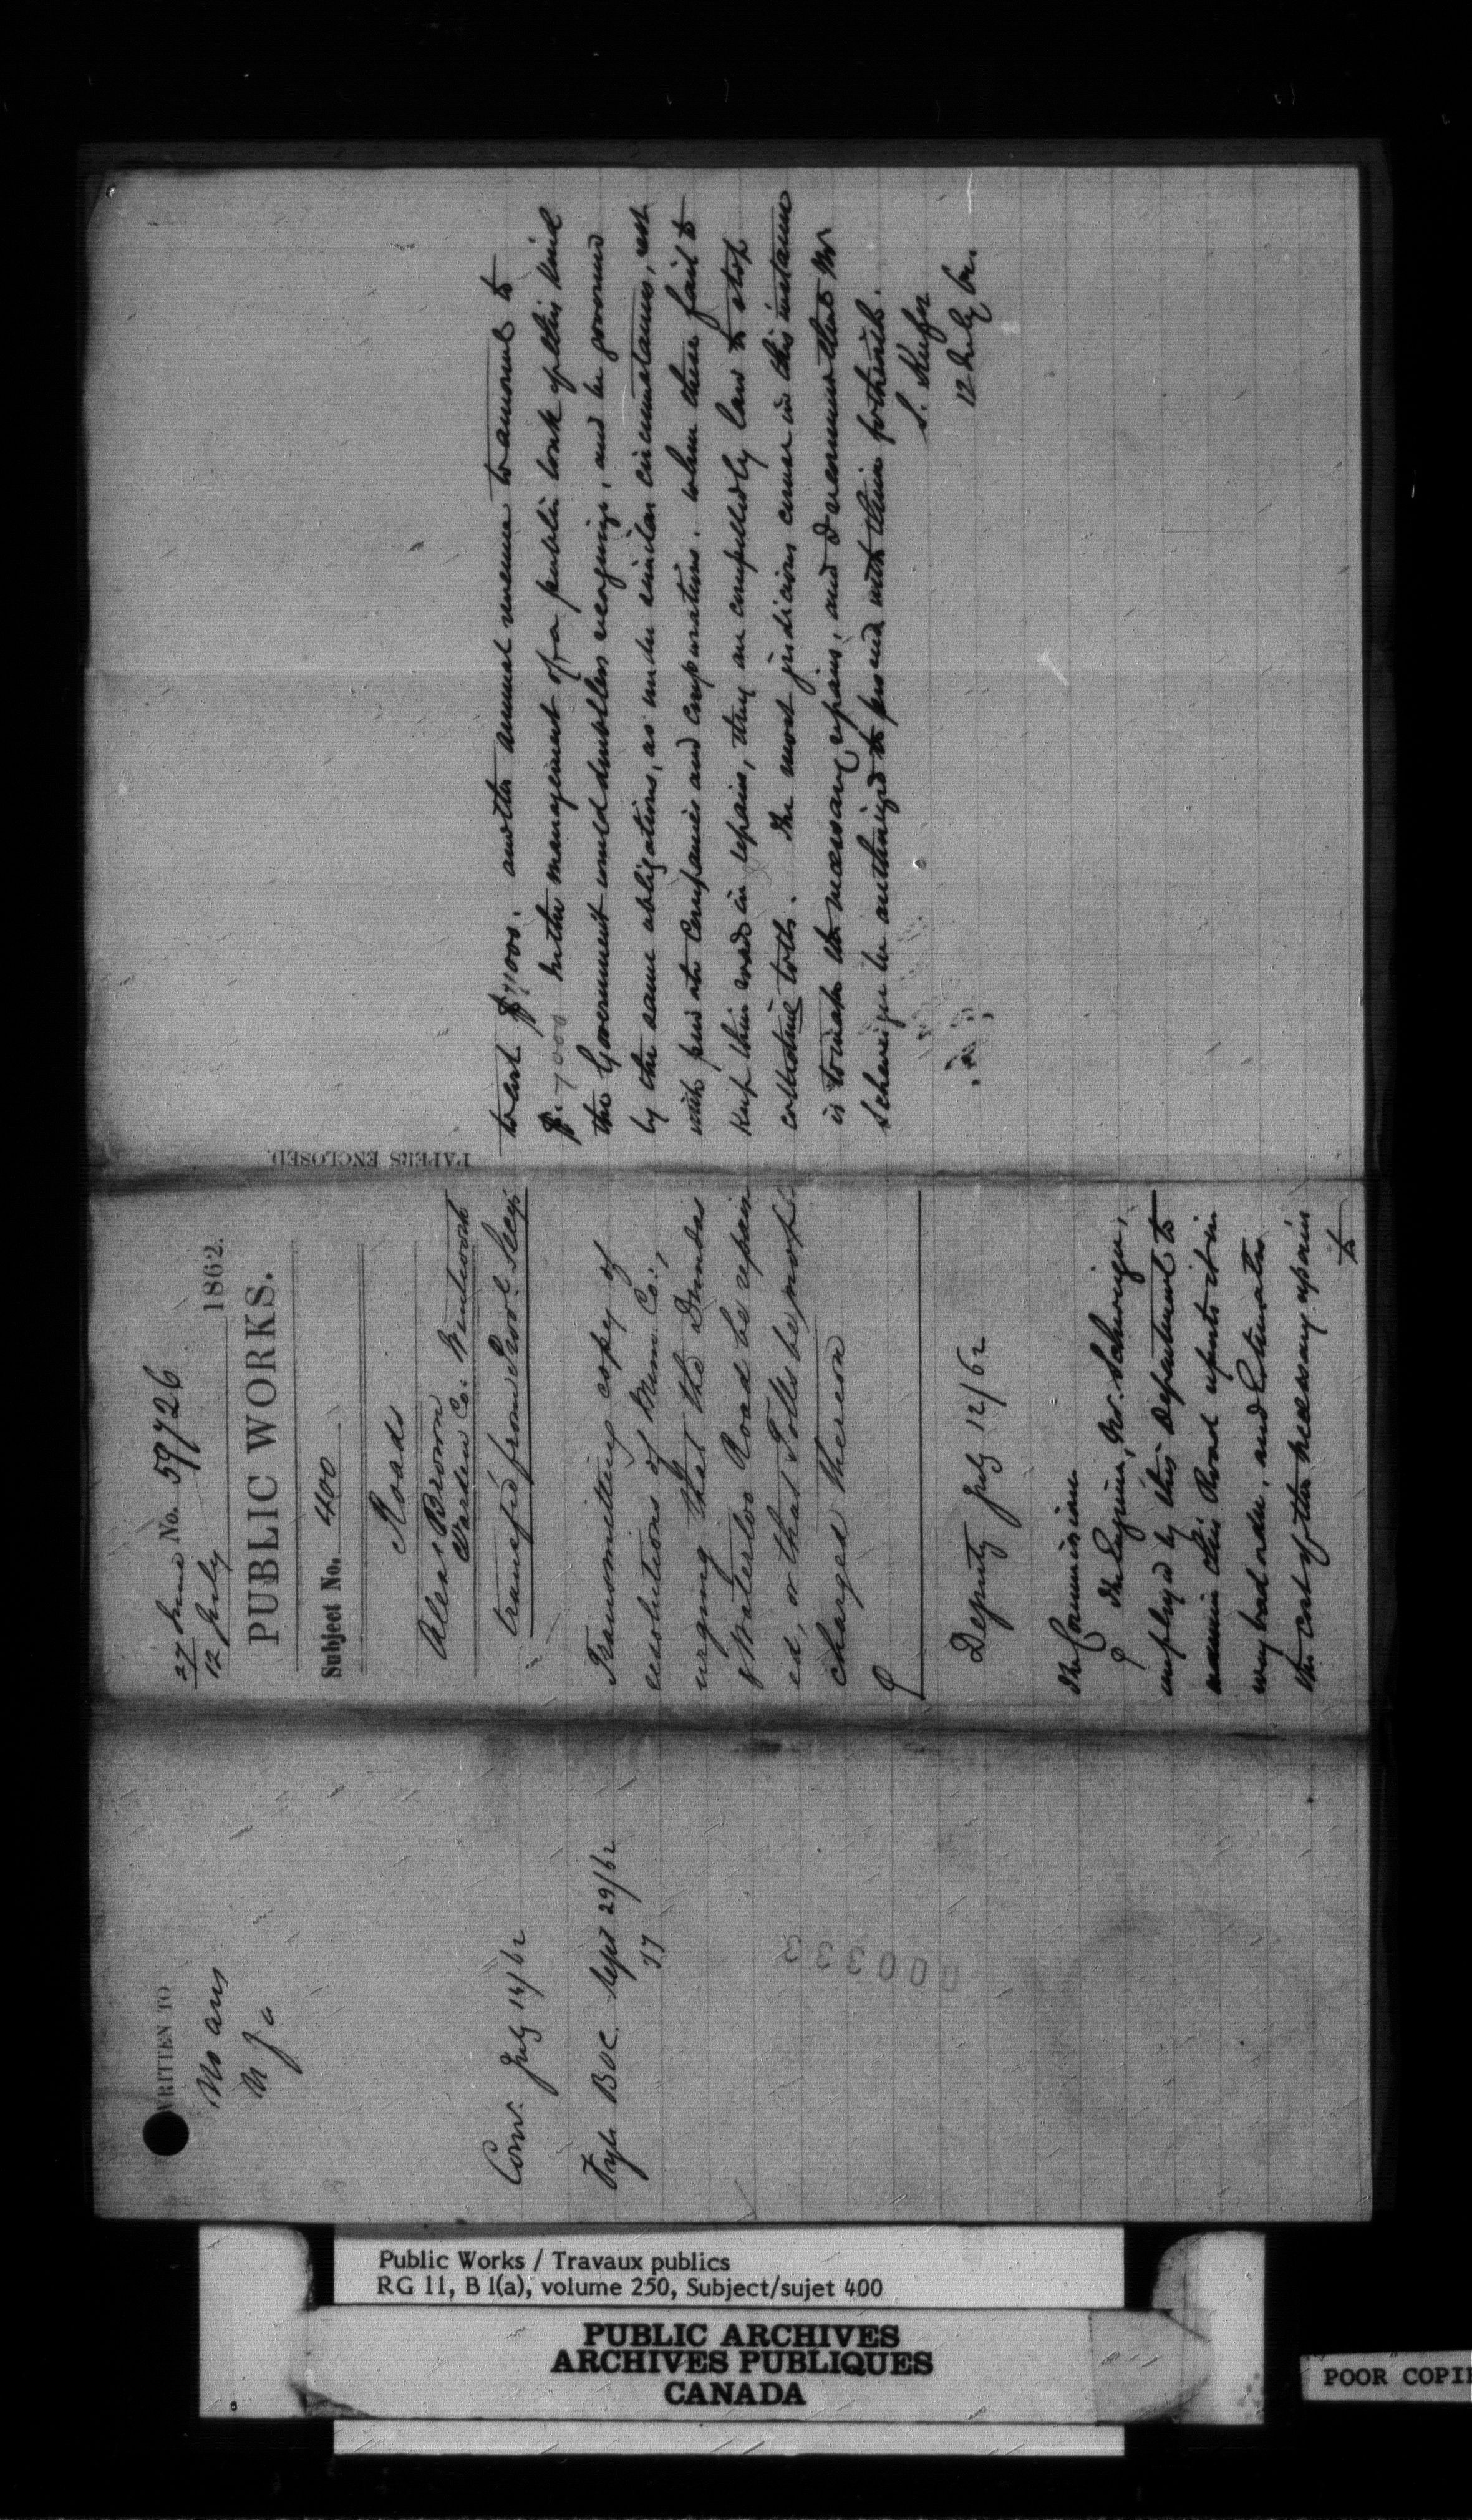 27 June No. 59726
12 July 1862.
PUBLIC WORKS.
Subject No. 400
Roads
Alex. Brown
Warden Co. Wentworth
transf'd from Prov'l Sec'y.
Transmitting copy of
resolutions of Mun. Co:,
urging that the Dundas
& Waterloo Road be repair
ed, or that Tolls be not
charged thereon
Deputy July 12/62
The Commissioner
The Engineer, Mr. Scheneiger,
employed by this Department to
examine this Road reports it in
very bad order, and Estimates
the cost of the necessary repairs
to
PAPERS ENCLOSED.
to cost $7,000. and the annual revenue to amount to
$7000 In the management of a public work of this kind
the Government would doubtless recognize, and be governed
by the same obligations, as under similar circumstances, rest
with private Companies and corporations. when these fail to
keep their roads in repair, they are compelled by law to stop
collecting tolls. The most judicious course in this instance
is to make the necessary repairs, and I recommend that Mr
Scheneiger be authorized to proceed with them forthwith.
S. Keefer
12 July 62.
WRITTEN TO
No ans
Com. July 14/62
Fyle BOC. Sept 29/62
JJ
00033
Public Works / Travaux publics
RG 11, B 1(a), volume 250, Subject/sujet 400
PUBLIC ARCHIVES
ARCHIVES PUBLIQUES
CANADA
POOR COPI